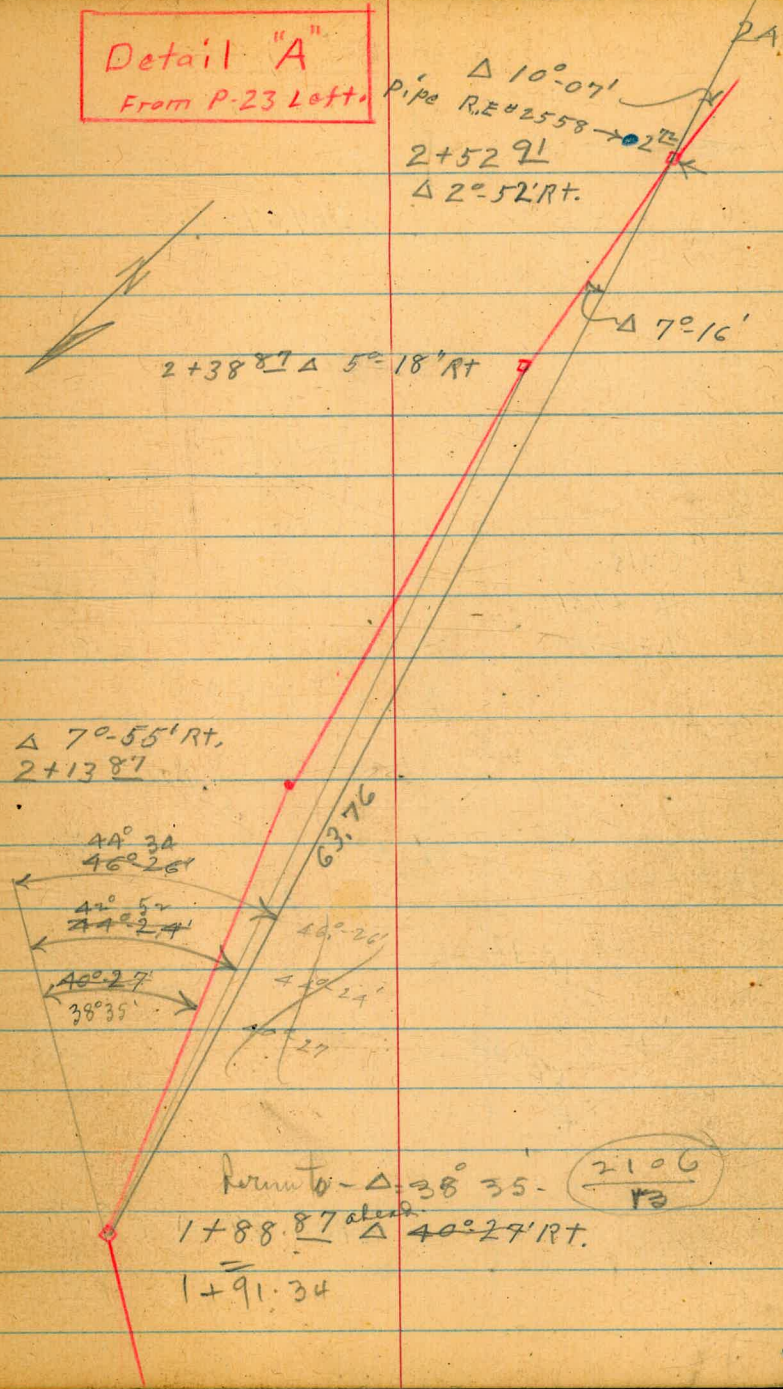 Detail "A"
From P-23 Left.
2A
Δ 10°-07'
Pipe R.E#2558 → 2"
2+52 91
Δ 2°-52' Rt.
Δ 7°-16'
2+38 87 Δ 5°-18" Rt
Δ 7°-55' Rt.
2+13 87
63.76
44° 34
46°-26'
42° 52
44°-24'
40°-27'
38°35'
46°-26'
44°-24'
40°-27
Δ = 38° 35'-
2106
13
1+88.87 ahead Δ 40°-27' Rt.
=
1+91.34